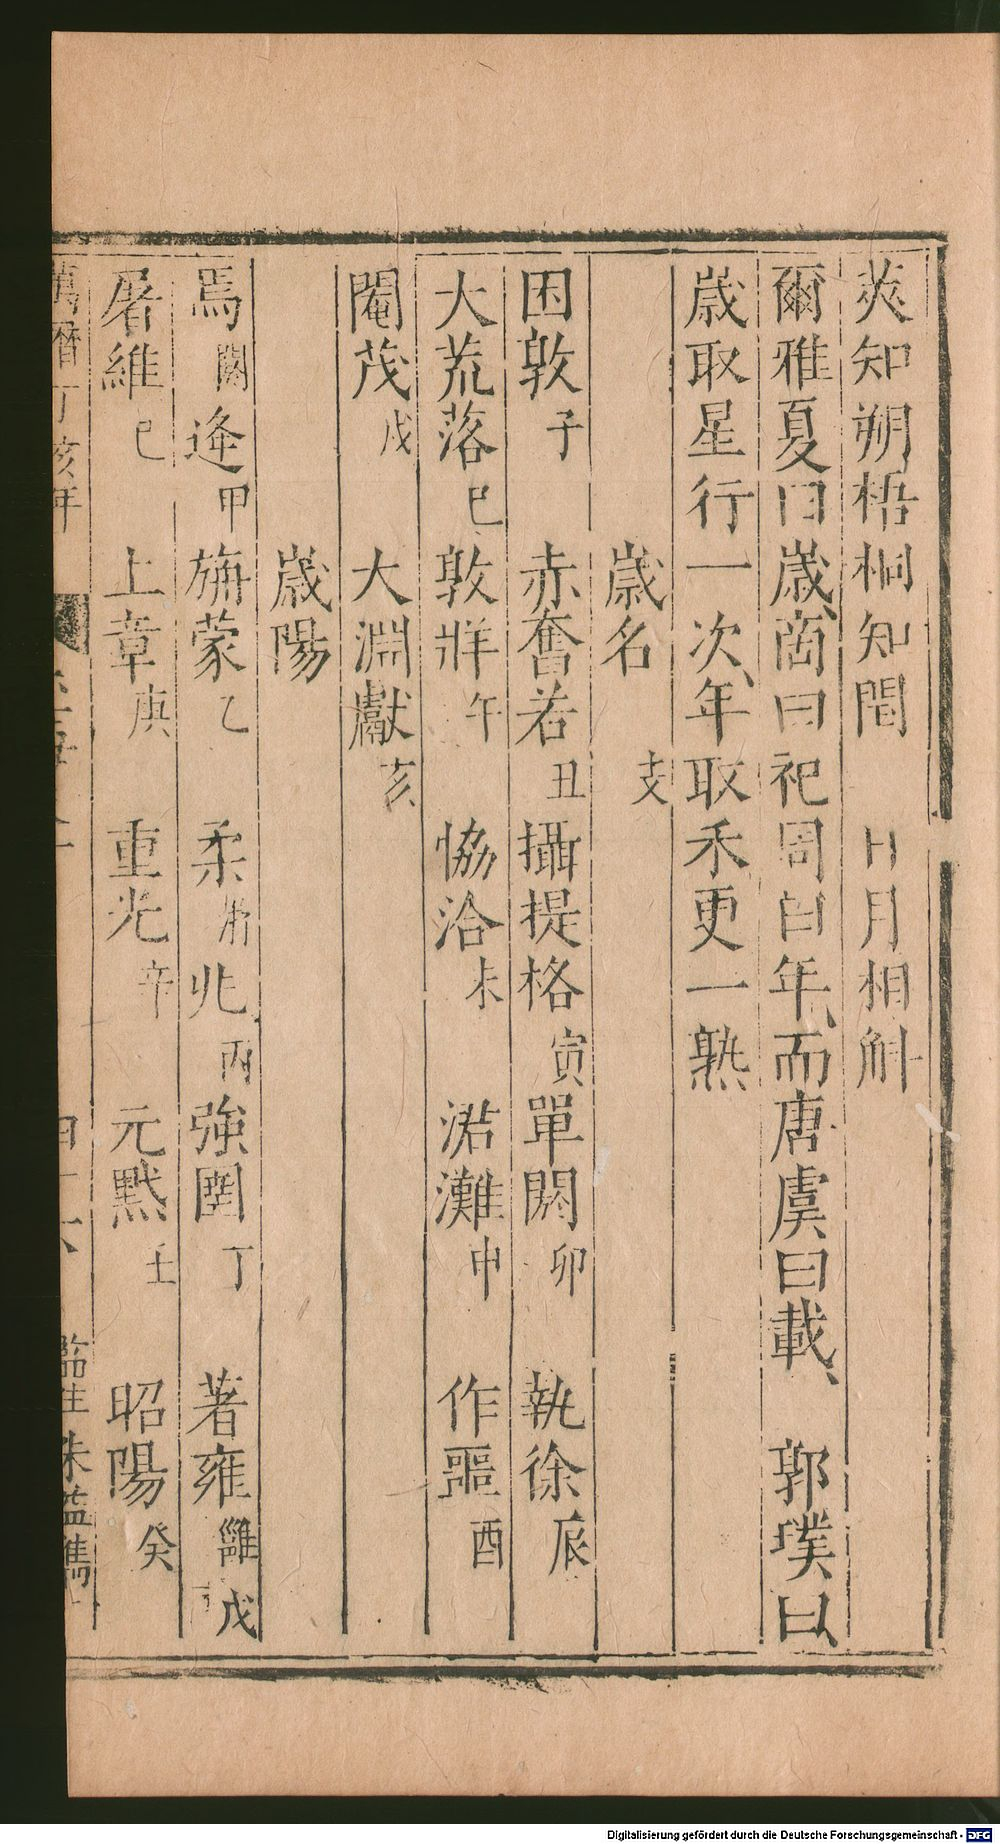 莢知朔梧桐知閏　日月相斛
爾雅夏曰歲商曰祀周曰年而唐虞曰載、郭璞曰、
歲取星行一次、年取禾更一熟
歲名支
困敦子　赤奮若丑　攝提格寅　單閼卯　執徐辰
大荒落巳　敦牂午　恊洽未　涒灘申　作噩酉
閹茂戌　大淵獻亥
歲陽
焉閼逄甲　旃蒙乙　柔兆丙　強圉丁　著雍雝戊
屠維己　上章庚　重光辛　元黓壬　昭陽癸
萬曆丁亥年
監生朱藍雋
Digitalisierung gefördert durch die Deutsche Forschungsgemeinschaft - DFG